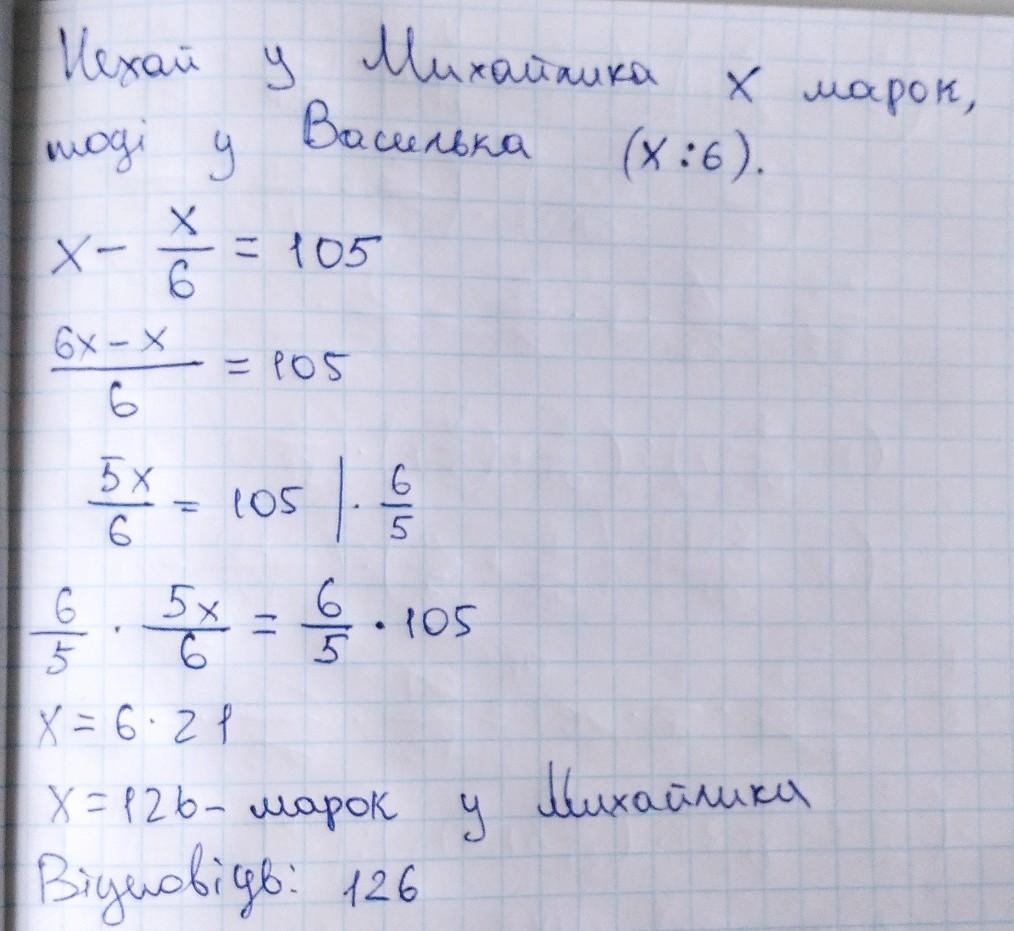 Нехай у Михайлика x марок,
тоді у Василька (x:6).
x - x/6 = 105
(6x - x)/6 = 105
5x/6 = 105 | · 6/5
6/5 · 5x/6 = 6/5 · 105
x = 6 · 21
x = 126 - марок у Михайлика
Відповідь: 126